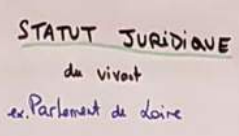 STATUT JURIDIQUE
du vivant
ex. Parlement de Loire